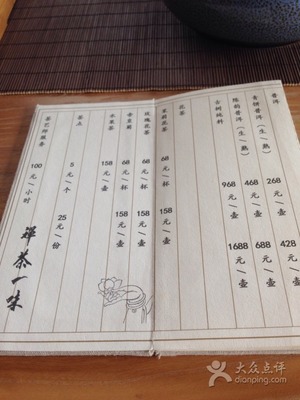 普洱
青饼普洱（生/熟） 268元/壶 428元/壶
陈韵普洱（生/熟） 468元/壶 688元/壶
古树纯料 968元/壶 1688元/壶
花茶
茉莉花茶 68元/杯 158元/壶
玫瑰花茶 68元/杯 158元/壶
68元/杯 158元/壶
水果茶 158元/壶
茶点 5元/个 25元/份
茶艺师服务 100元/小时
禅茶一味
大众点评
dianping.com